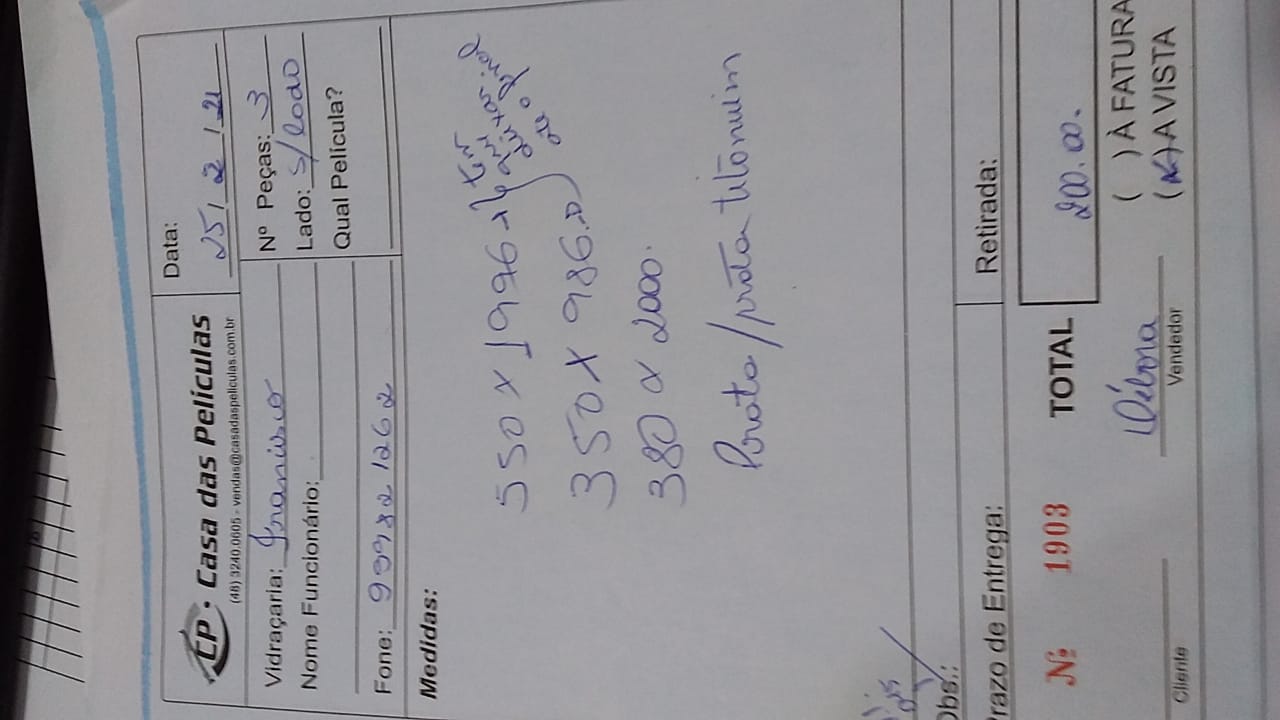 CP · Casa das Películas
(48) 3240.0605 - vendas@casadaspeliculas.com.br
Data:
25/ 2 / 21
Vidraçaria:
Nome Funcionário:
Fone: 99982 1262
Nº Peças: 3
Lado: s/lado
Qual Película?
Medidas:
550 x 1996
350 x 986
380 x 2000.
Prata/prata titonuim
Obs.:
Prazo de Entrega:
Retirada:
Nº 1903
TOTAL 200.00.
Débora
Cliente
Vendedor
( ) À FATURA
(x) A VISTA